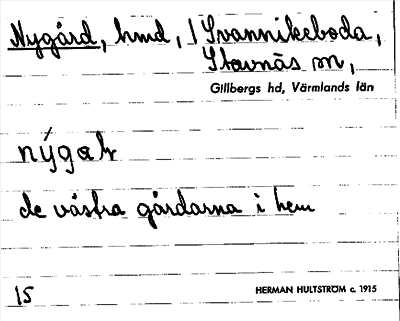 Nygård, hmd, / Svannikeboda,
Stavnäs sn,
Gillbergs hd, Värmlands län
nýgaḷ
de västra gårdarna i hem
15
HERMAN HULTSTRÖM c. 1915